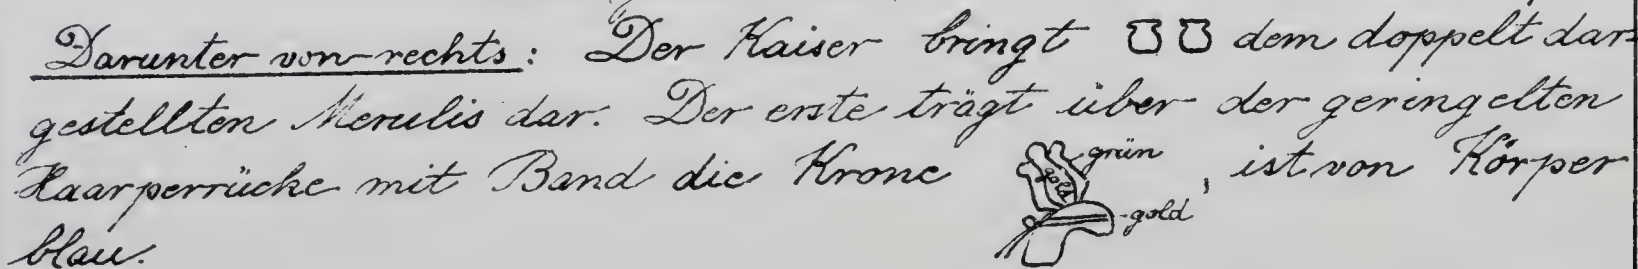 Darunter von rechts: Der Kaiser bringt dem doppelt dar-
gestellten Merulis dar. Der erste trägt über der geringelten
Haarperrücke mit Band die Krone grün gold gold, ist von Körper
blau.